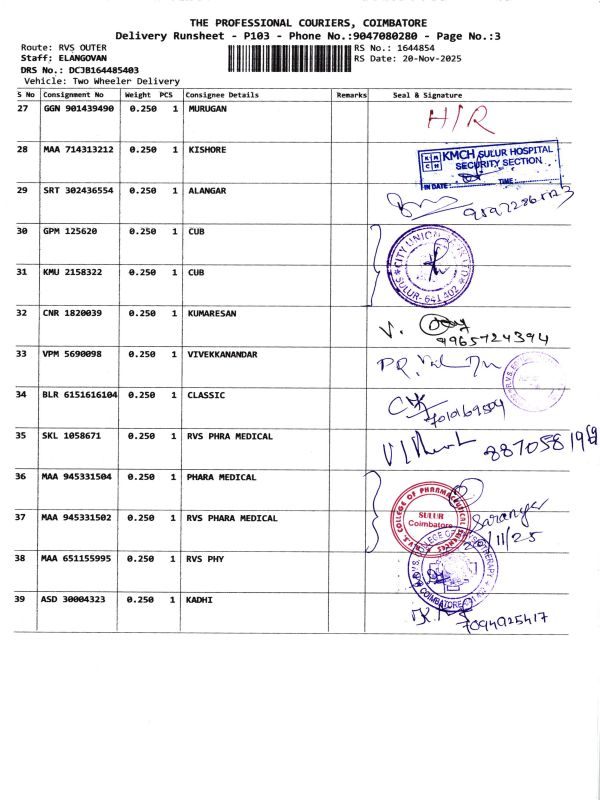 THE PROFESSIONAL COURIERS, COIMBATORE
Delivery Runsheet - P103 - Phone No.:9047080280 - Page No.:3
Route: RVS OUTER RS No.: 1644854
Staff: ELANGOVAN RS Date: 20-Nov-2025
DRS No.: DCJB164485403
Vehicle: Two Wheeler Delivery
S No Consignment No Weight PCS Consignee Details Remarks Seal & Signature
27 GGN 901439490 0.250 1 MURUGAN H/R
28 MAA 714313212 0.250 1 KISHORE
KMCH SULUR HOSPITAL
SECURITY SECTION
IN DATE: TIME:
29 SRT 302436554 0.250 1 ALANGAR
30 GPM 125620 0.250 1 CUB
CITY UNION BANK LTD
SULUR- 641 402
31 KMU 2158322 0.250 1 CUB
32 CNR 1820039 0.250 1 KUMARESAN V.
9965724394
33 VPM 5690098 0.250 1 VIVEKKANANDAR
34 BLR 6151616104 0.250 1 CLASSIC
35 SKL 1058671 0.250 1 RVS PHRA MEDICAL
36 MAA 945331504 0.250 1 PHARA MEDICAL
R.V.S. COLLEGE OF PHARMACEUTICAL SCIENCES
SULUR
Coimbatore
37 MAA 945331502 0.250 1 RVS PHARA MEDICAL Saranya
/11/25
38 MAA 651155995 0.250 1 RVS PHY
39 ASD 30004323 0.250 1 KADHI
7094925417